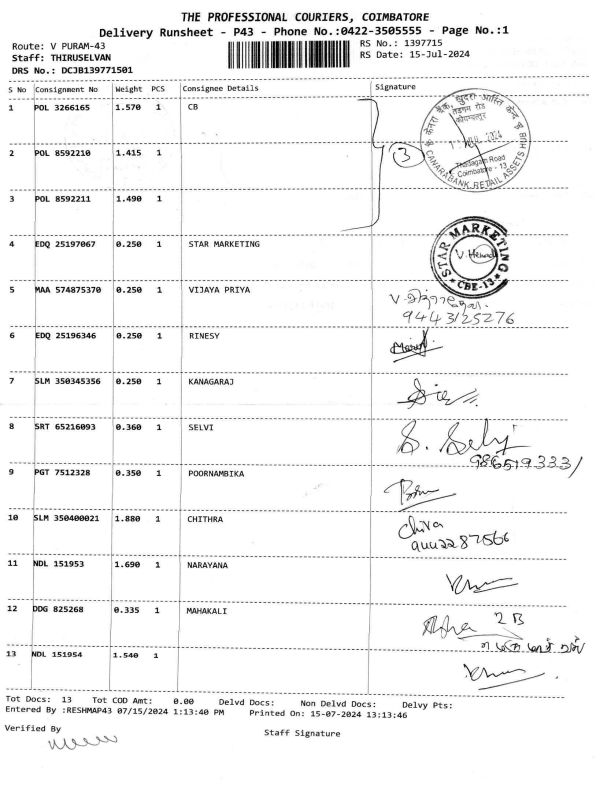 THE PROFESSIONAL COURIERS, COIMBATORE
Delivery Runsheet - P43 - Phone No.:0422-3505555 - Page No.:1
Route: V PURAM-43
RS No.: 1397715
Staff: THIRUSELVAN
RS Date: 15-Jul-2024
DRS No.: DCJB139771501
S No Consignment No Weight PCS Consignee Details Signature
1 POL 3266165 1.570 1 CB
2 POL 8592210 1.415 1
3
CANARA BANK, RETAIL ASSETS HUB
Thadagam Road
Coimbatore - 13
3 POL 8592211 1.490 1
4 EDQ 25197067 0.250 1 STAR MARKETING
STAR MARKETING
CBE-13
5 MAA 574875370 0.250 1 VIJAYA PRIYA
9443125276
6 EDQ 25196346 0.250 1 RINESY
7 SLM 350345356 0.250 1 KANAGARAJ
8 SRT 65216093 0.360 1 SELVI
S. Selvi
9 PGT 7512328 0.350 1 POORNAMBIKA
10 SLM 350400021 1.880 1 CHITHRA
11 NDL 151953 1.690 1 NARAYANA
12 DDG 825268 0.335 1 MAHAKALI
2B
13 NDL 151954 1.540 1
Tot Docs: 13 Tot COD Amt: 0.00 Delvd Docs: Non Delvd Docs: Delvy Pts:
Entered By :RESHMAP43 07/15/2024 1:13:40 PM Printed On: 15-07-2024 13:13:46
Verified By
Staff Signature